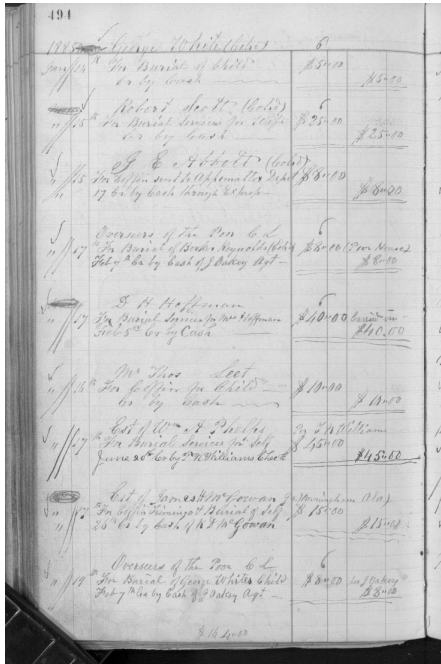 494
1885 George White (Cold) 6
June 14th For Burial of Child $5.00
Cr by Cash $5.00
Robert Scott (Cold) 6
" 15th For Burial Services for Wife $25.00
Cr by Cash $25.00
G E Abbott (Cold) 6
" 15 For Coffin sent to Appomattox Depot $8.00
" 17 Cr by Cash through Express $8.00
Overseers of the Poor C L 6
" 17th For Burial of Reynolds (Cold) $8.00 (Poor House)
Feb 7th Cr by Cash of J Oakey Agt $8.00
D H Hoffman 6
" 17th For Burial Services for Mrs Hoffman $40.00
Feb 5th Cr by Cash $40.00
Mr Thos Leet
" 18th For Coffin for Child $10.00
Cr by Cash $10.00
Est of Wm A Phelps Per T N Williams
" 17th For Burial Services for Self $45.00
June 20th Cr by T N Williams Check $45.00
Est of James H McGowan (Birmingham Ala)
" 17th For Coffin Trimings & Burial of Self $15.00
" 26th Cr by Cash of McGowan $15.00
Overseers of the Poor C L 6
" 19th For Burial of George Whites Child $8.00 J Oakey
Feb 7th Cr by Cash of J Oakey Agt $8.00
$164.00